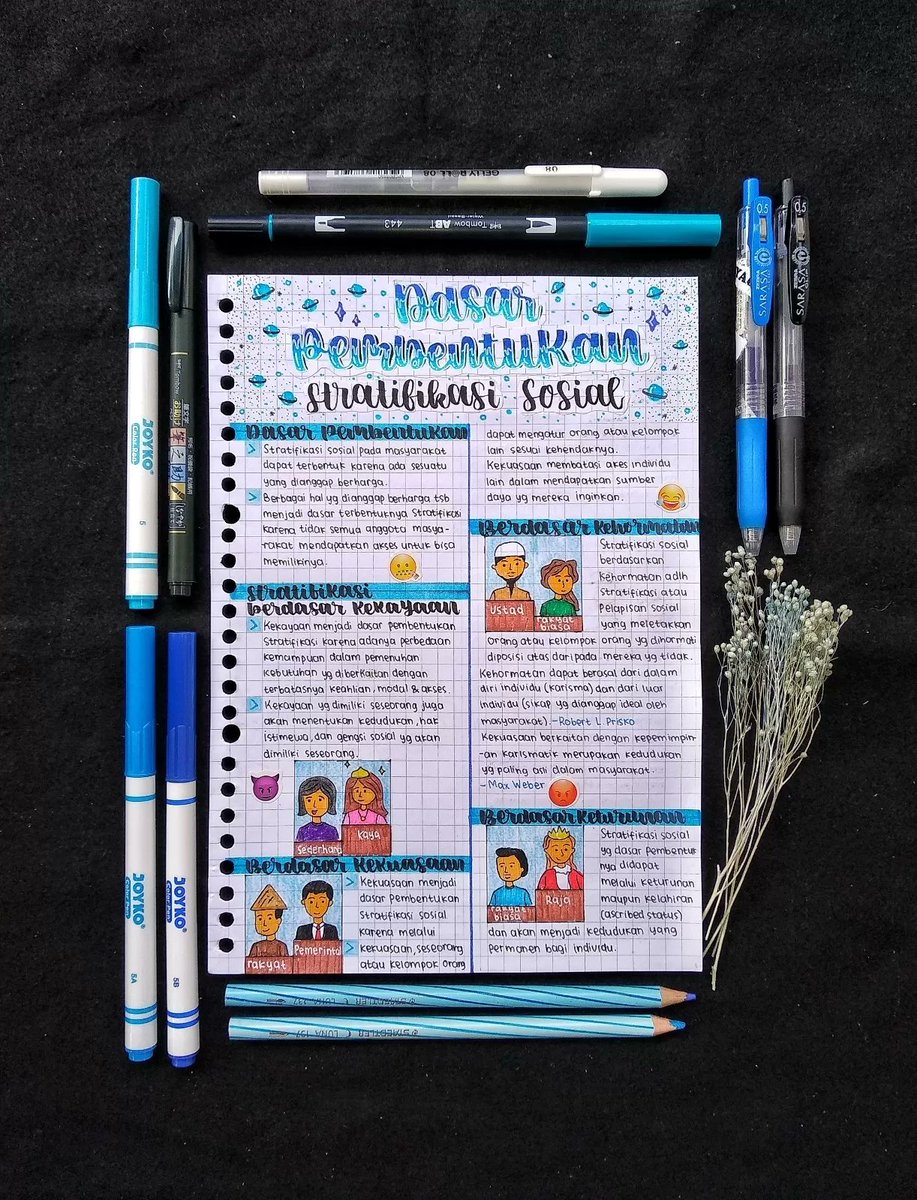 GELLY ROLL 08
08
Tombow ABT
443
0.5
SARASA
0.5
SARASA
JOYKO
5
Dasar
Pembentukan
Stratifikasi Sosial
Dasar Pembentukan
> Stratifikasi sosial pada masyarakat
dapat terbentuk karena ada sesuatu
yang dianggap berharga.
> Berbagai hal yg dianggap berharga tsb
menjadi dasar terbentuknya Stratifikasi
karena tidak semua anggota masya-
rakat mendapatkan akses untuk bisa
memilikinya.
Stratifikasi
berdasar Kekayaan
> Kekayaan menjadi dasar pembentukan
Stratifikasi karena adanya perbedaan
kemampuan dalam pemenuhan
kebutuhan yg diberkaitan dengan
terbatasnya keahlian, modal & akses.
> Kekayaan yg dimiliki seseorang juga
akan menentukan kedudukan, hak
istimewa, dan gengsi sosial yg akan
dimiliki seseorang.
Sederhana
Kaya
Berdasar Kekuasaan
rakyat
Pemerintah
> Kekuasaan menjadi
dasar pembentukan
Stratifikasi sosial
karena melalui
> kekuasaan, seseorang
atau kelompok orang
dapat mengatur orang atau kelompok
lain sesuai kehendaknya.
Kekuasaan membatasi akses individu
lain dalam mendapatkan sumber
daya yg mereka inginkan.
Berdasar Kehormatan
Ustad
rakyat
biasa
Stratifikasi sosial
berdasarkan
Kehormatan adlh
Stratifikasi atau
Pelapisan sosial
yang meletakkan
orang atau kelompok orang yg dihormati
diposisi atas daripada mereka yg tidak.
Kehormatan dapat berasal dari dalam
diri individu (karisma) dan dari luar
individu (sikap yg dianggap ideal oleh
masyarakat). - Robert L Prisko
Kekuasaan berkaitan dengan kepemimpin-
-an karismatik merupakan kedudukan
yg paling asli dalam masyarakat.
- Max Weber
Berdasar Keturunan
rakyat
biasa
Raja
Stratifikasi sosial
yg dasar pembentuk
nya didapat
melalui keturunan
maupun kelahiran
(ascribed status)
dan akan menjadi kedudukan yang
permanen bagi individu.
JOYKO
5A
JOYKO
5B
STAEDTLER LUNA 137
STAEDTLER LUNA 137